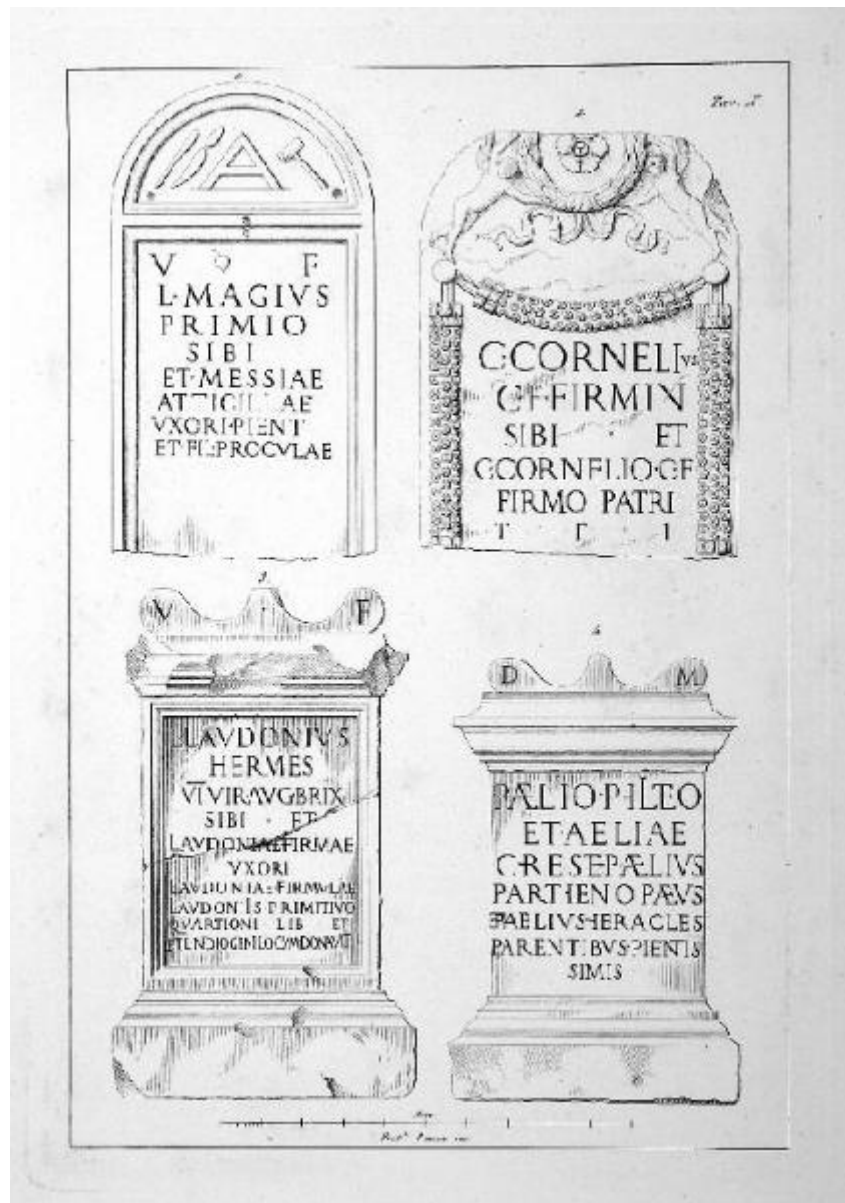 1.
2.
V F
L·MAGIVS
PRIMIO
SIBI
ET·MESSIAE
VXORI·PIENT
ET·FIL·PROCVLAE
C·CORNELIVS
C·F·FIRMIN
SIBI · ET
C·CORNELIO·C·F
FIRMO PATRI
3.
V F
L·LAVDONIVS
HERMES
VI VIR·AVG·BRIX
SIBI · ET
LAVDONIAE·FIRMAE
VXORI
LAVDONIAE·FIRMVLAE
LAVDONIS PRIMITIVO
QVARTIONI LIB ET
4.
D M
P·ÆLIO·PHILETO
ET·AELIAE
CHREST·P·ÆLIVS
PARTHENOPÆVS
ET·P·AELIVS·HERACLES
PARENTIBVS·PIENTIS
SIMIS